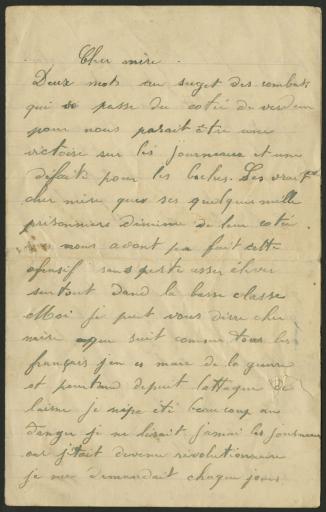 Cher mère.
Deux mots au suget des combats
qui se passe du cotié de verdun
pour nous parait être une
victoire sur les journeaux et une
défaite pour les boches. Les vrai
cher mère que ses quelque mille
prisonniers diminue de leur cotié.
nous avont pu fait cette
ofensif sans perte asser élever
surtout dand la basse classe
Moi je peut vous dirre cher
mère que suit comme tous les
français j'en es mare de la guerre
et pourtand depuit l'attaque de
l'aisne je n'ape été beaucoup au
danger je ne lisait j'amai les journeaux
car j'était devenue révolutionnaire
je me demandait chaque jours